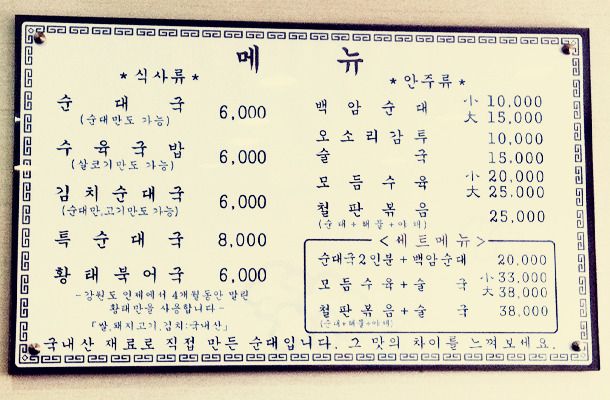 메 뉴
*식사류*
순 대 국 6,000
(순대만도 가능)
수 육 국 밥 6,000
(살코기만도 가능)
김 치 순 대 국 6,000
(순대만,고기만도 가능)
특 순 대 국 8,000
황 태 북 어 국 6,000
-강원도 인제에서 4개월동안 말린
황태만을 사용합니다-
「쌀,돼지고기,김치:국내산」
*안주류*
백 암 순 대 小 10,000
大 15,000
오 소 리 감 투 10,000
술 국 15,000
모 듬 수 육 小 20,000
大 25,000
철 판 볶 음 25,000
(순대+해물+야채)
<세트메뉴>
순대국2인분+백암순대 20,000
모 듬 수 육 + 술 국 小 33,000
大 38,000
철 판 볶 음 + 술 국 38,000
(순대+해물+야채)
국내산 재료로 직접 만든 순대입니다. 그 맛의 차이를 느껴보세요.